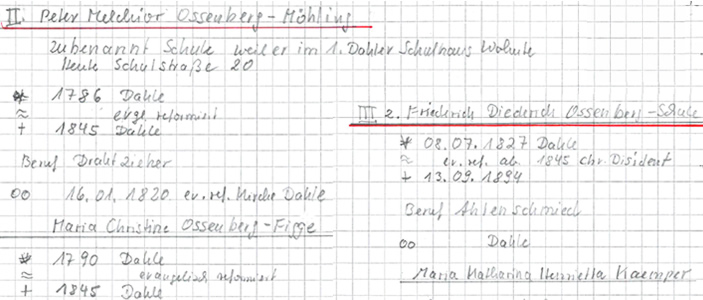 II. Peter Melchior Ossenberg-Möhling
zubenannt Schule weil er im 1. Dahler Schulhaus Wohnte
Heute Schulstraße 20
* 1786 Dahle
≈ evgl. reformiert
+ 1845 Dahle
Beruf Drahtzieher
oo 16.01.1820 ev. ref. Kirche Dahle
Maria Christine Ossenberg-Figge
* 1790 Dahle
≈ evangelisch reformiert
+ 1845 Dahle
III 2. Friederich Diederich Ossenberg-Schule
* 08.07.1827 Dahle
≈ ev. ref. ab 1845 chr. Disident
+ 13.09.1894
Beruf Ahlenschmied
oo Dahle
Maria Katharina Henriella Kaemper